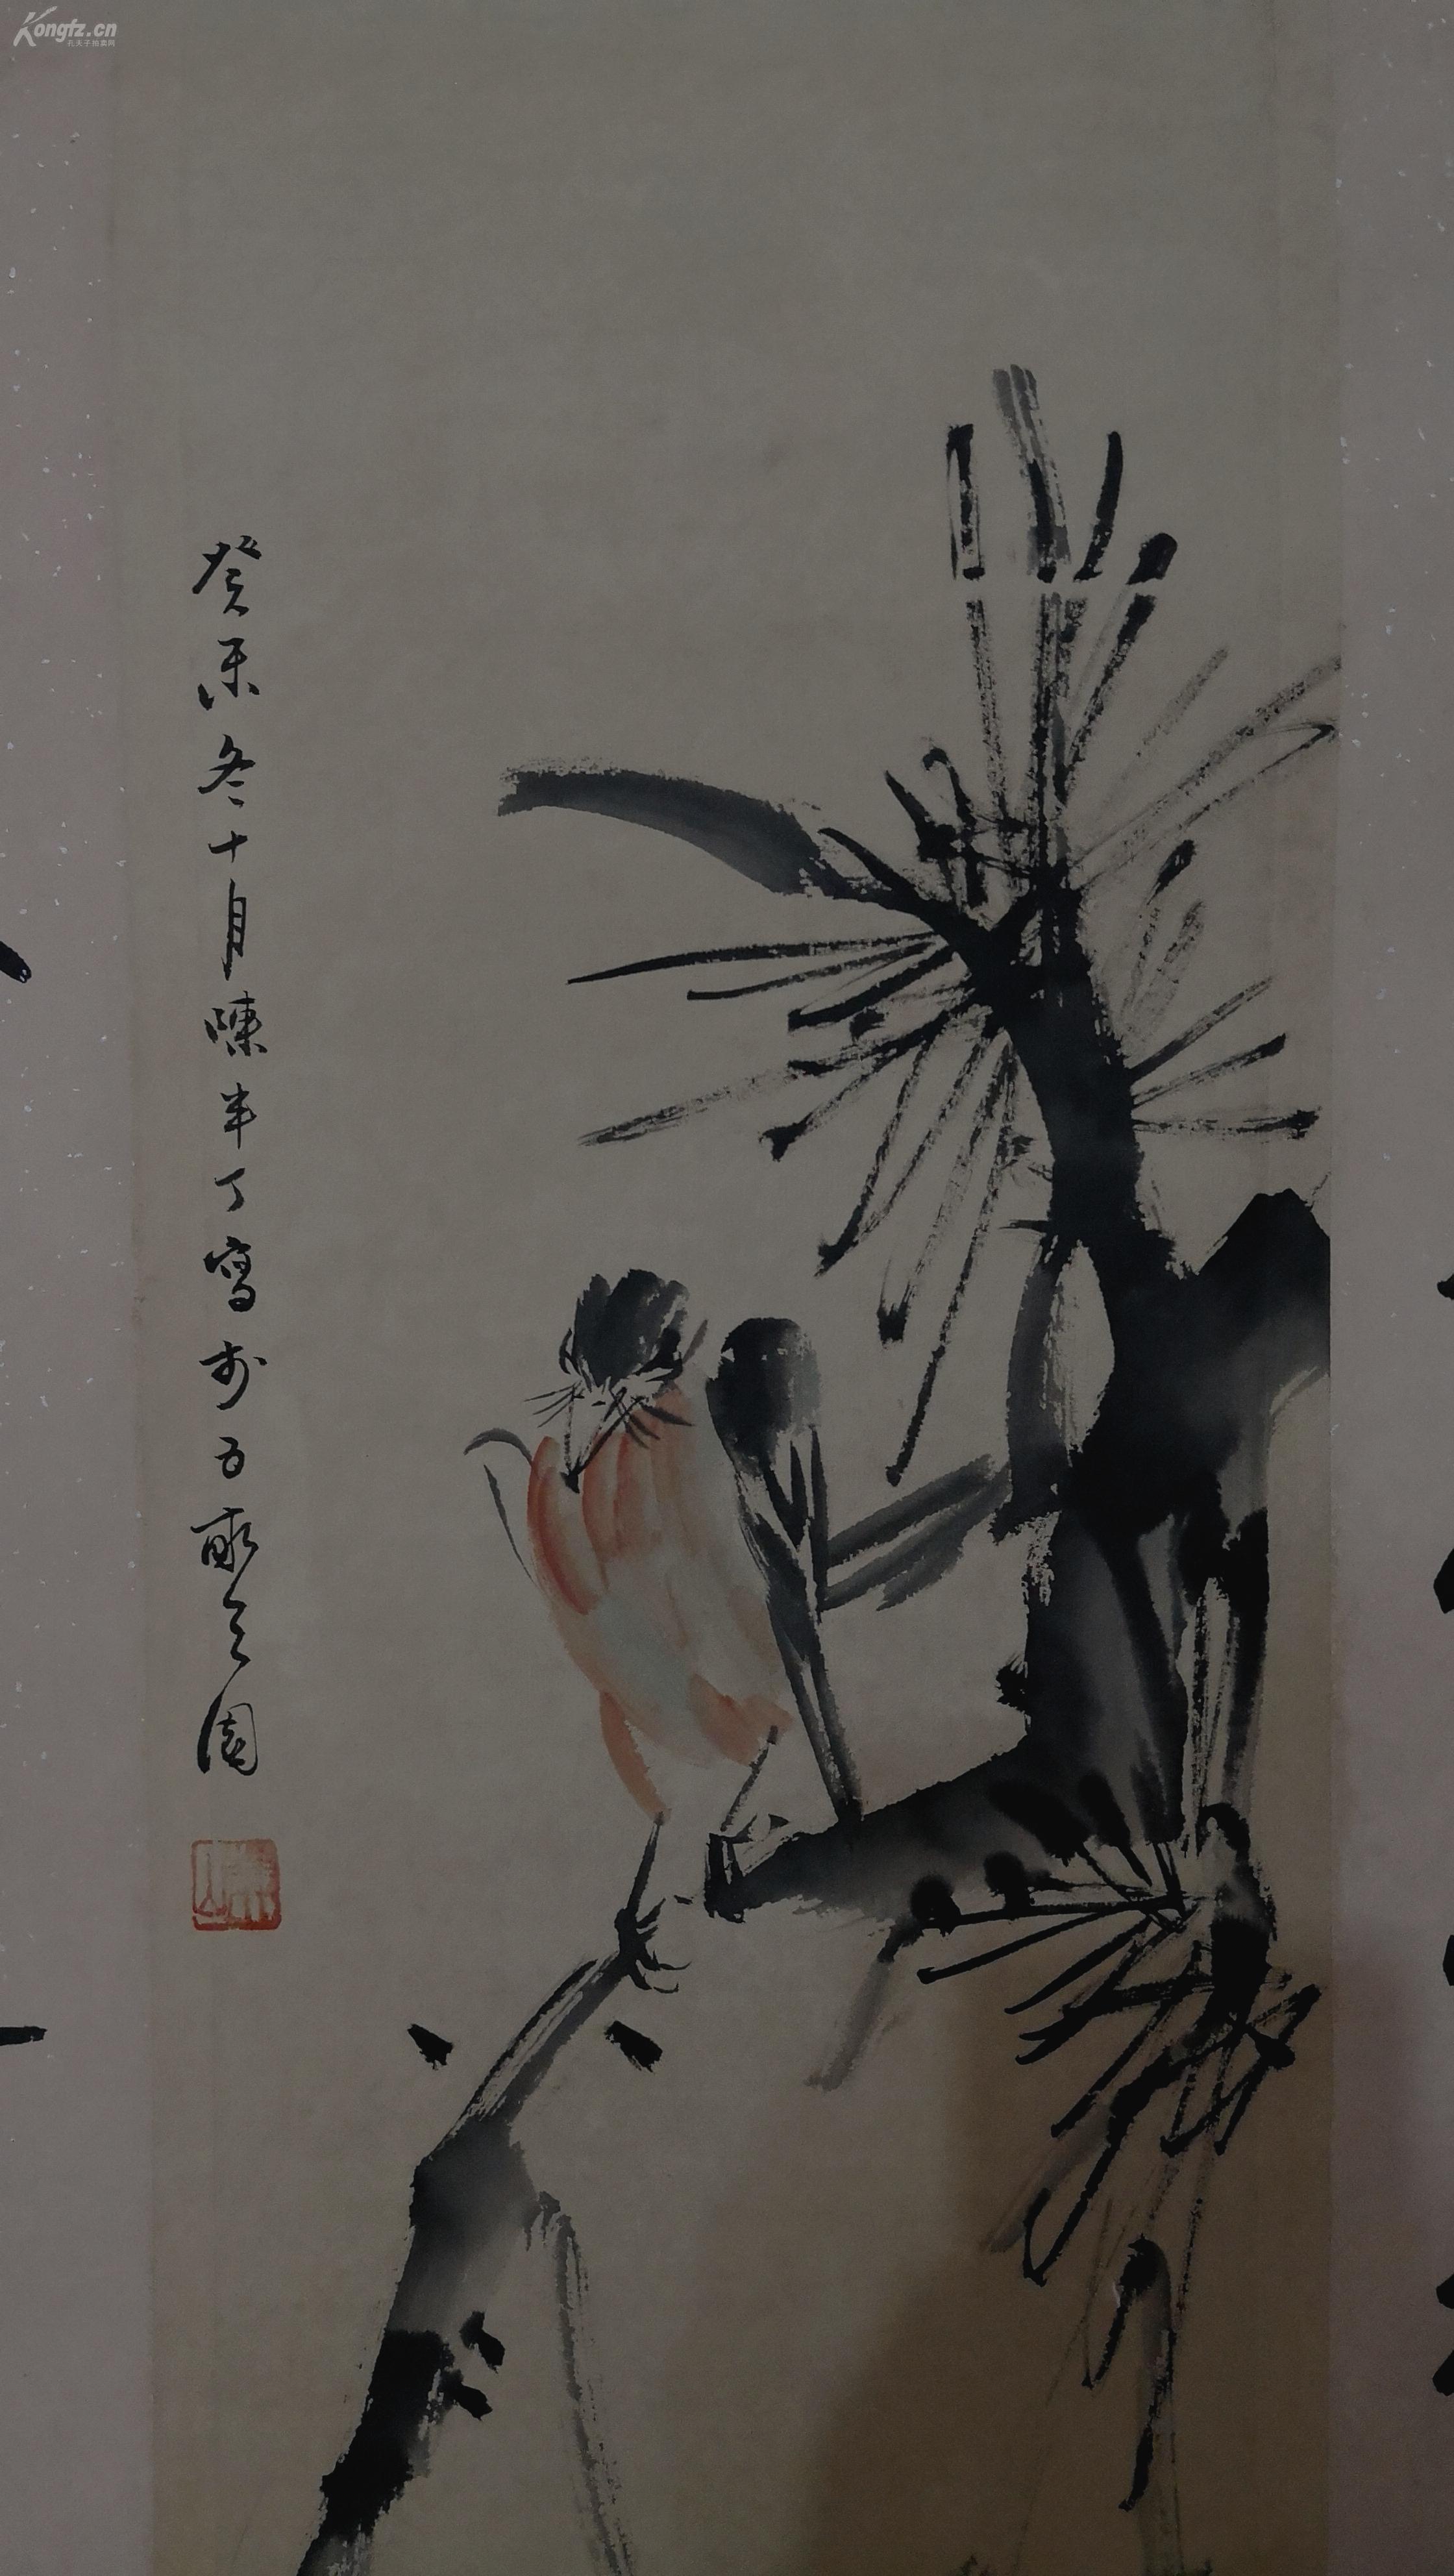 Kongfz.cn
孔夫子拍卖网
癸未冬十月陳半丁寫於五畝之園